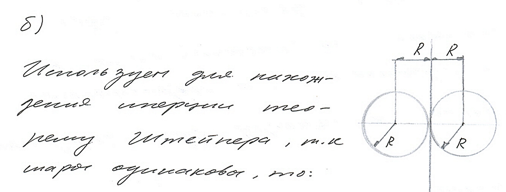 б)
R R
Используем для нахож-
дения инерции тео-
рему Штейнера, т.к
шары одинаковы, то:
R R